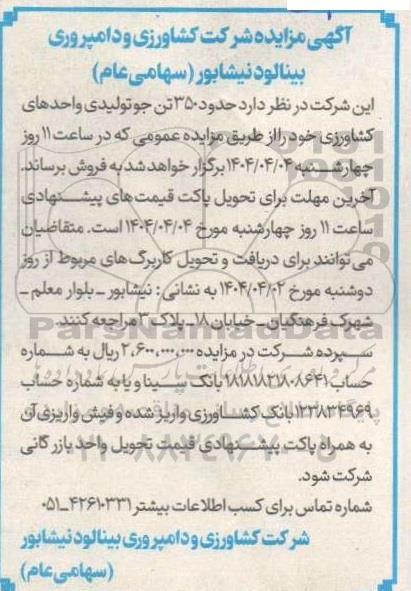 آگهی مزایده شرکت کشاورزی و دامپروری
بینالود نیشابور (سهامی عام)
این شرکت در نظر دارد حدود ۳۵۰ تن جو تولیدی واحدهای
کشاورزی خود را از طریق مزایده عمومی که در ساعت ۱۱ روز
چهارشنبه ۱۴۰۴/۰۴/۰۴ برگزار خواهد شد به فروش برساند.
آخرین مهلت برای تحویل پاکت قیمت‌های پیشنهادی
ساعت ۱۱ روز چهارشنبه مورخ ۱۴۰۴/۰۴/۰۴ است. متقاضیان
می‌توانند برای دریافت و تحویل کاربرگ‌های مربوط از روز
دوشنبه مورخ ۱۴۰۴/۰۴/۰۲ به نشانی: نیشابور ـ بلوار معلم ـ
شهرک فرهنگیان ـ خیابان ۱۸ ـ پلاک ۳ مراجعه کنند.
سپرده شرکت در مزایده ۲,۶۰۰,۰۰۰,۰۰۰ ریال به شماره
حساب ۱۸۱۸۱۸۲۱۸۰۸۶۴۱ بانک سینا و یا به شماره حساب
۱۲۲۸۳۴۹۶۹ بانک کشاورزی واریز شده و فیش واریزی آن
به همراه پاکت پیشنهادی قیمت تحویل واحد بازرگانی
شرکت شود.
شماره تماس برای کسب اطلاعات بیشتر ۴۲۶۱۰۳۳۱-۰۵۱
شرکت کشاورزی و دامپروری بینالود نیشابور
(سهامی عام)
ParsNamadData